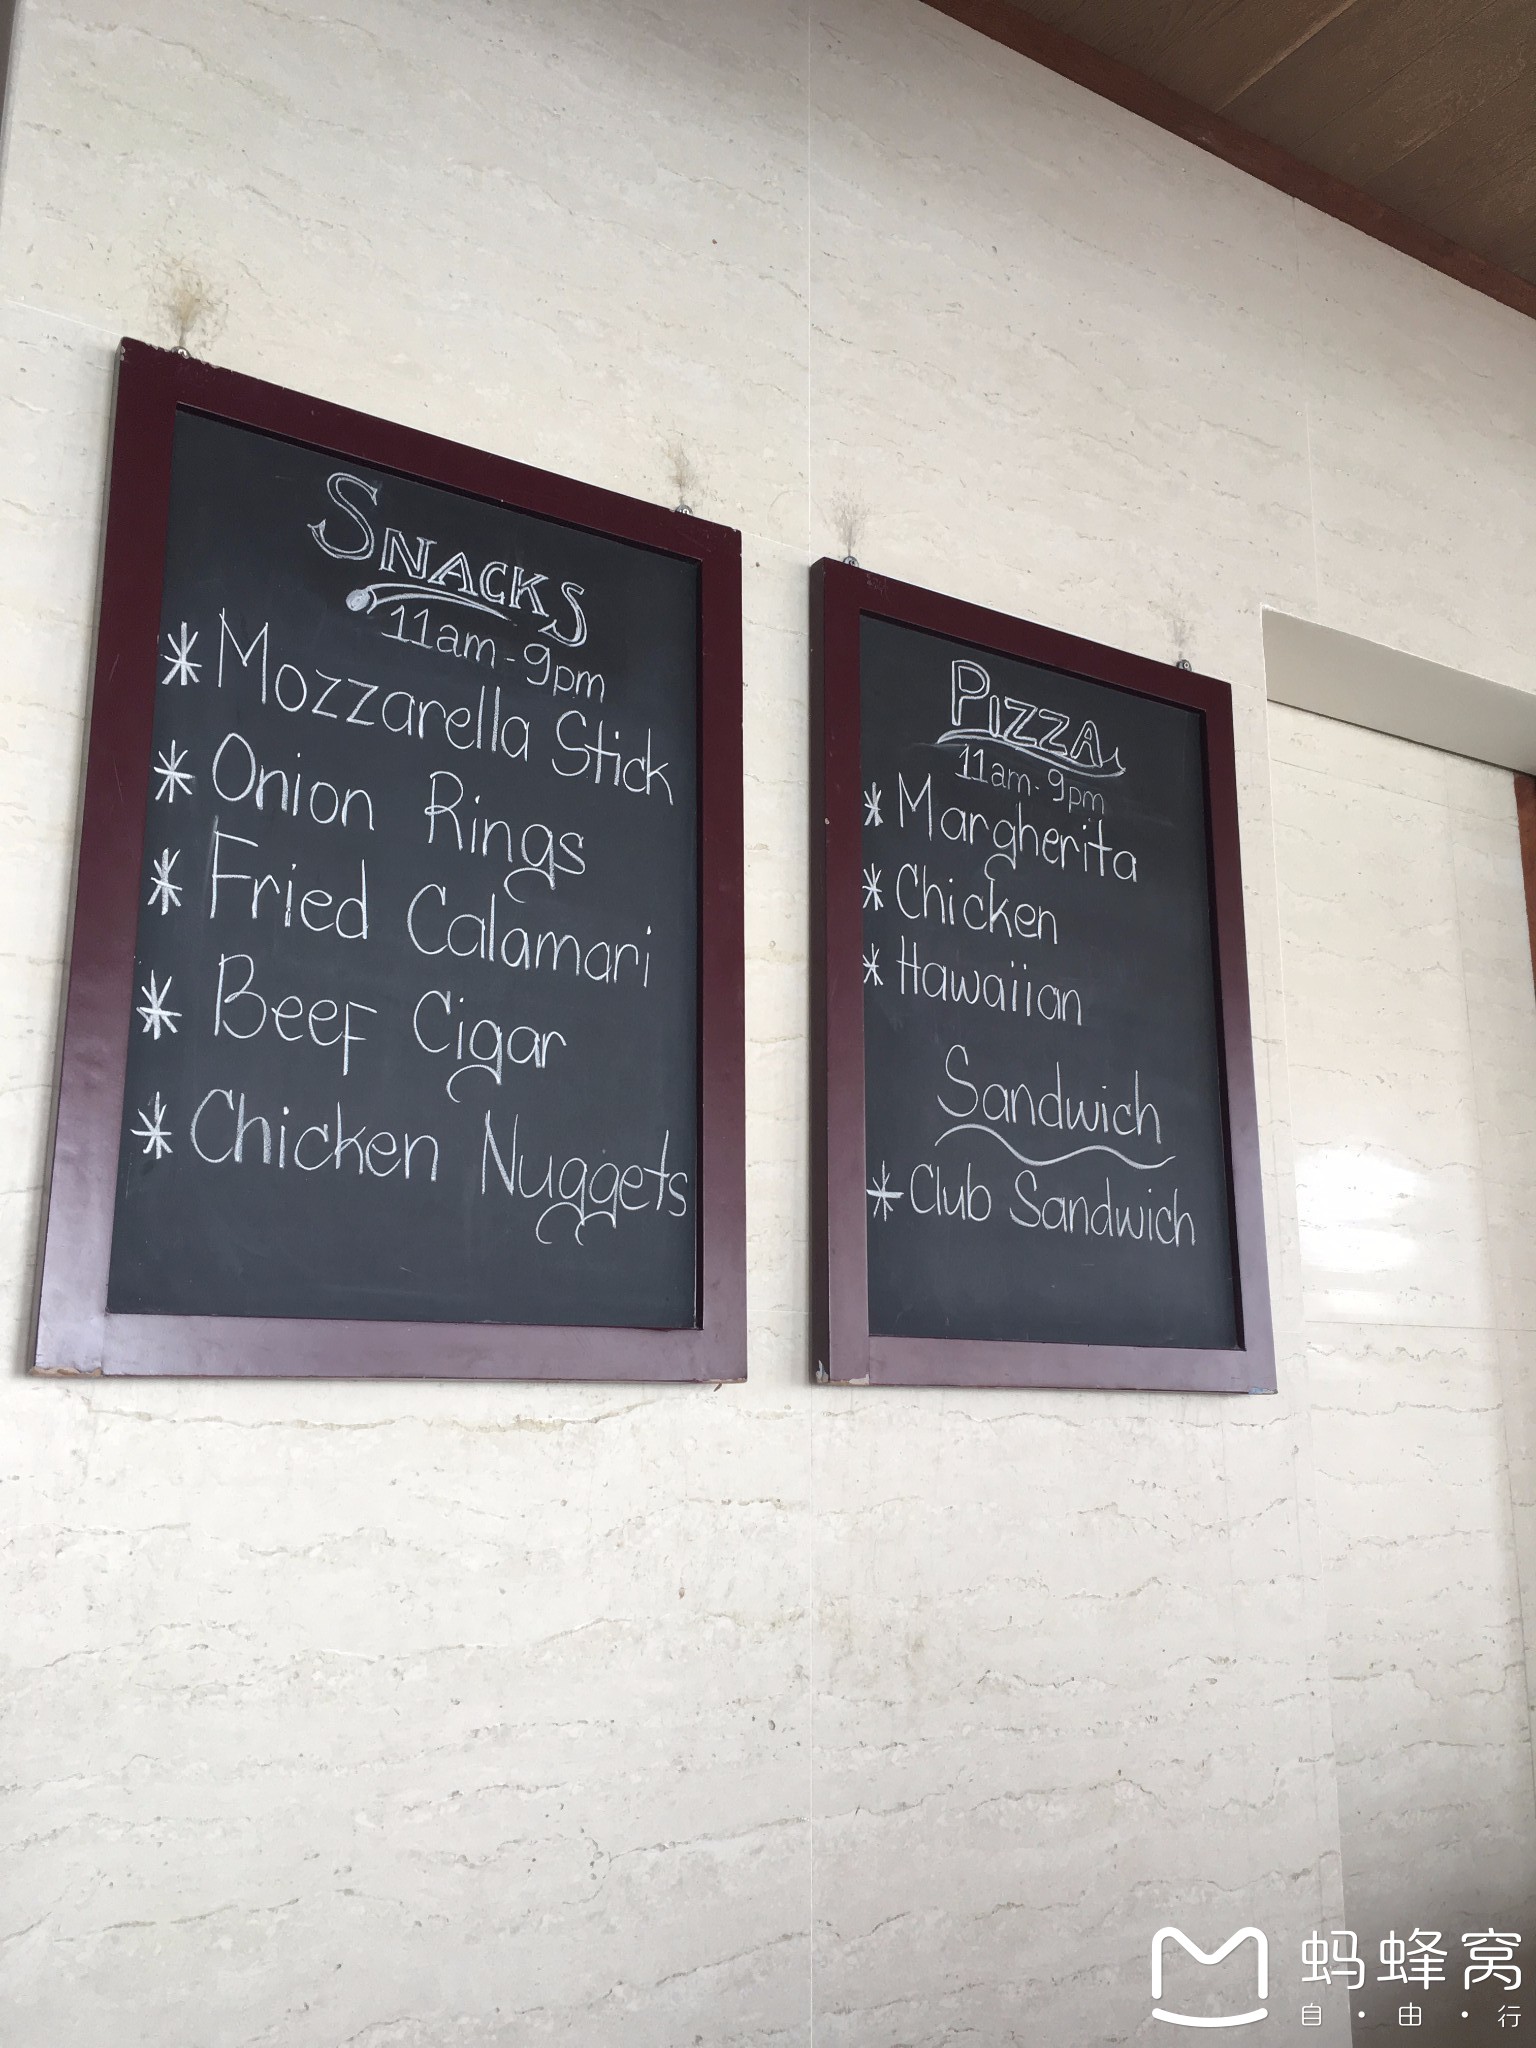 SNACKS
11am-9pm
* Mozzarella Stick
* Onion Rings
* Fried Calamari
* Beef Cigar
* Chicken Nuggets
PIZZA
11am-9pm
* Margherita
* Chicken
* Hawaiian
Sandwich
* Club Sandwich
蚂蜂窝
自·由·行